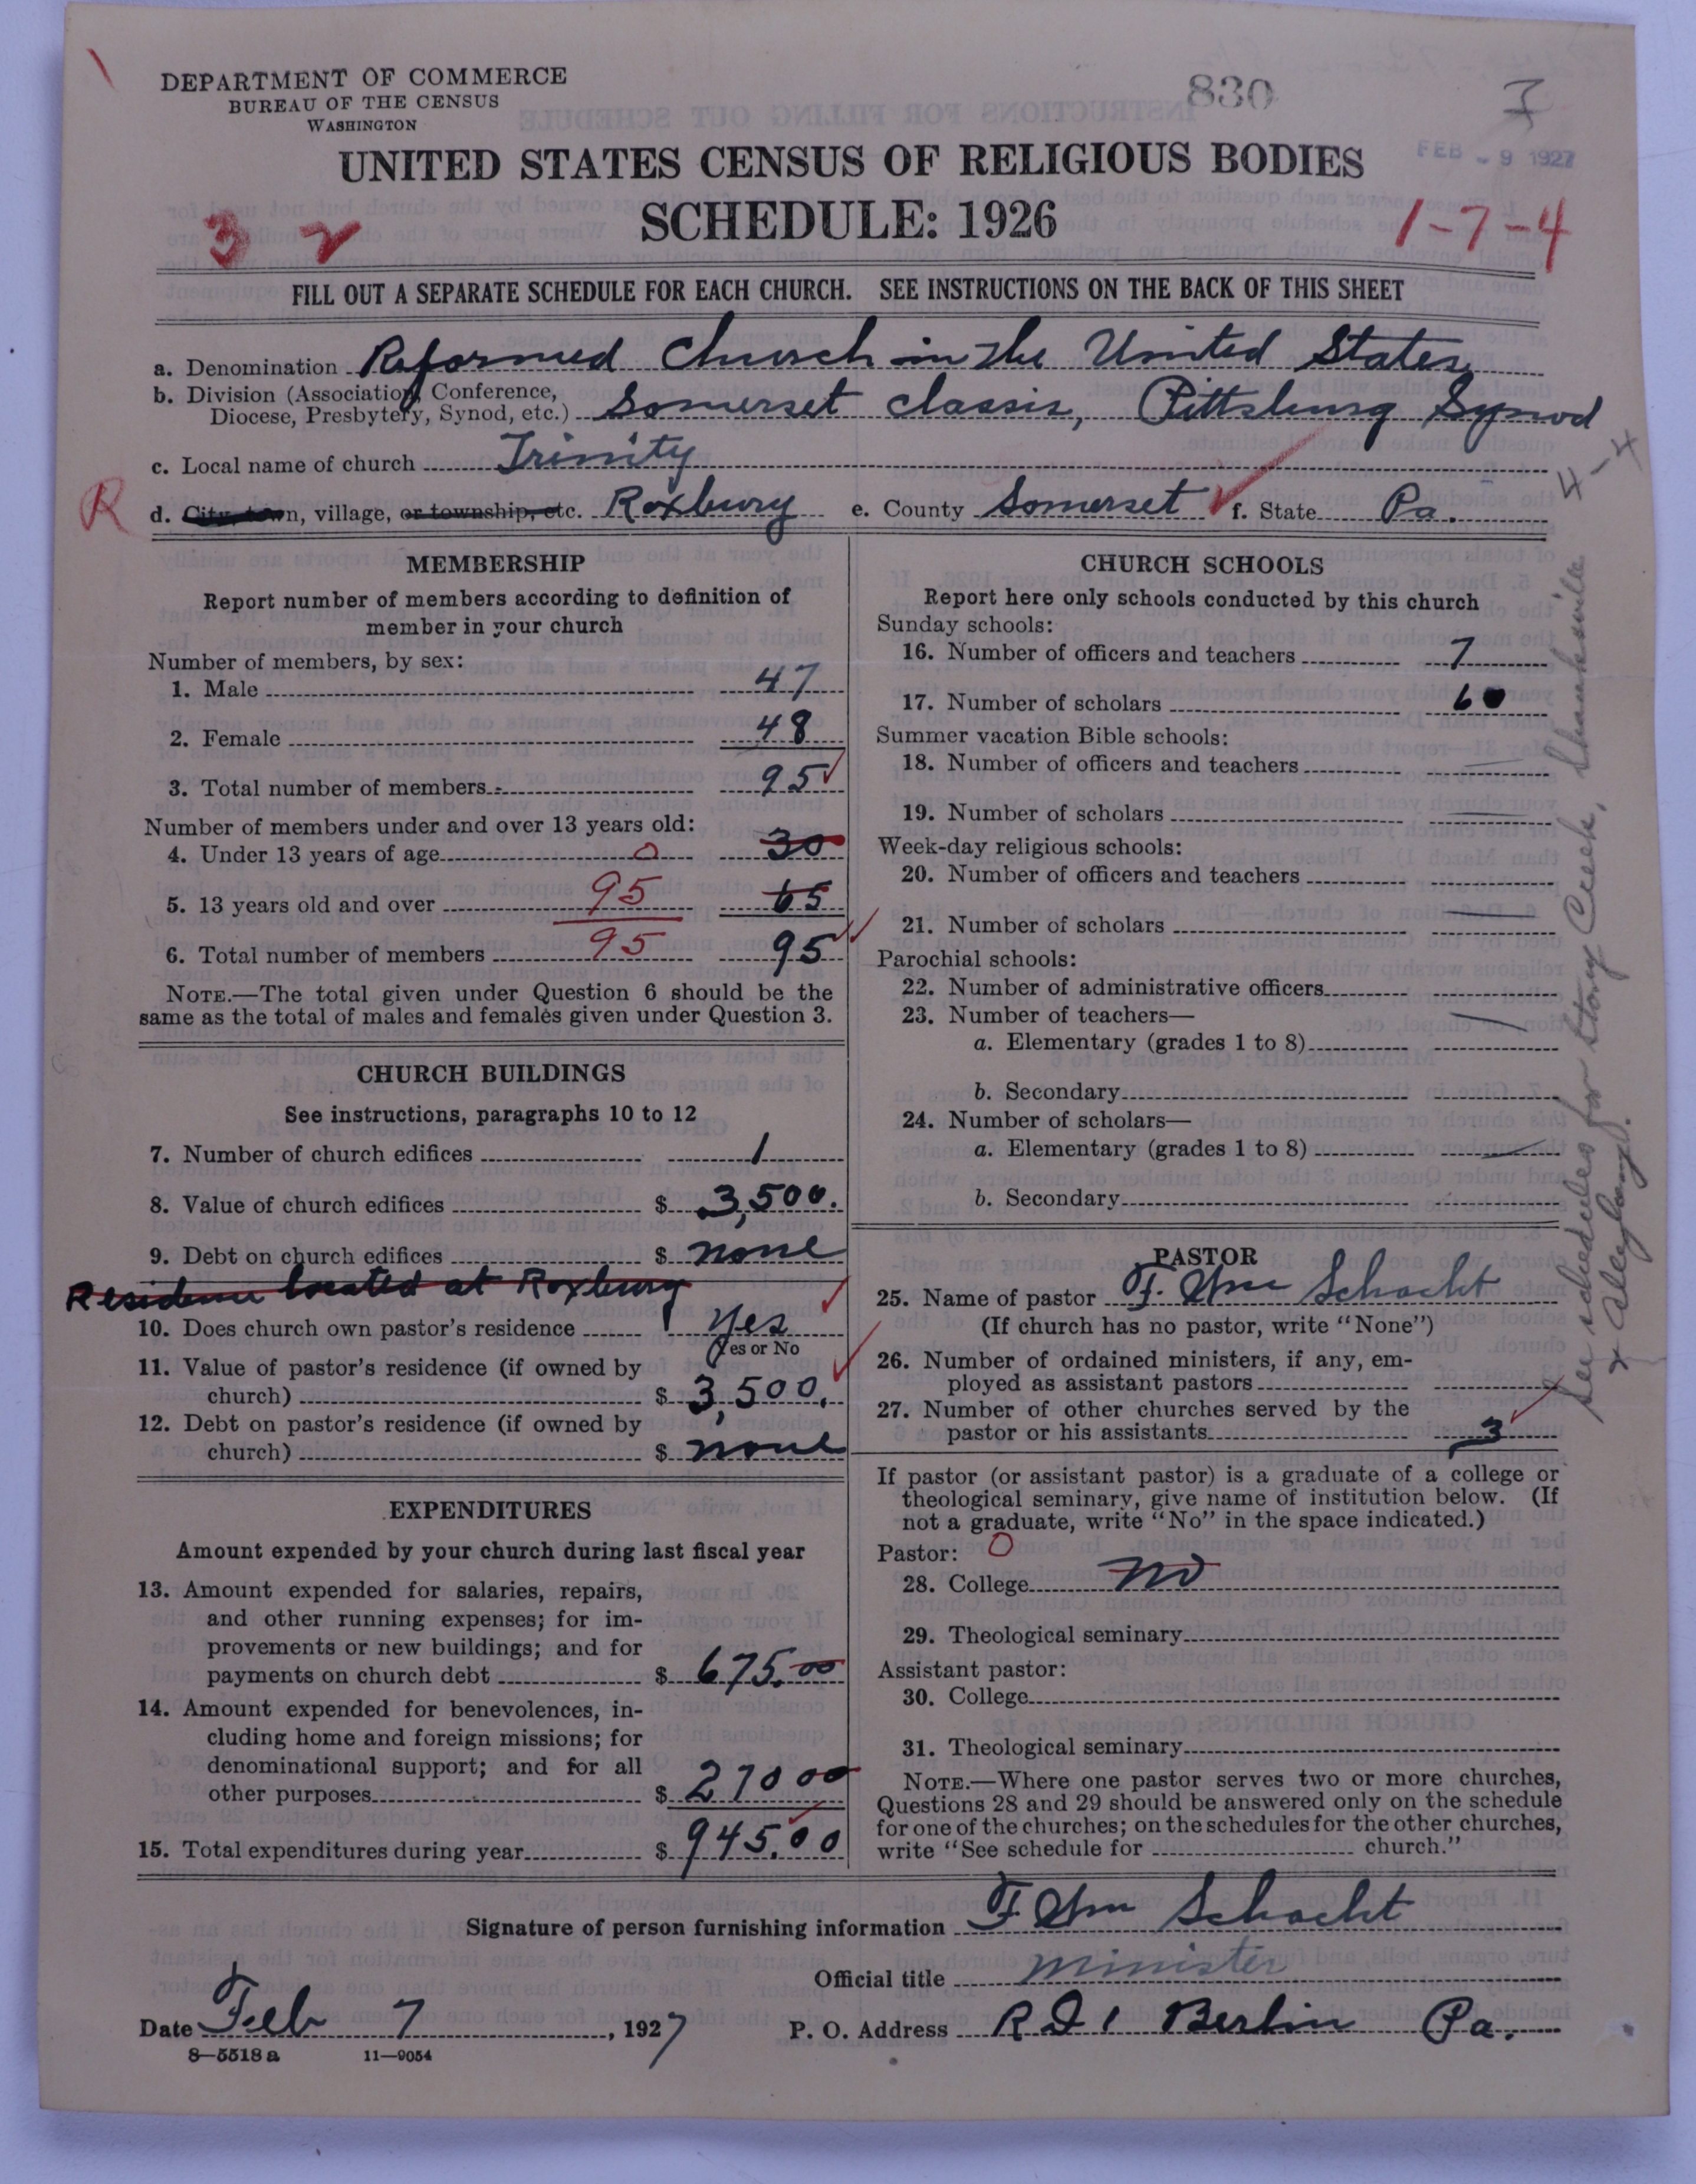 DEPARTMENT OF COMMERCE
BUREAU OF THE CENSUS
WASHINGTON
830
I
FEB - 9 1927
UNITED STATES CENSUS OF RELIGIOUS BODIES
SCHEDULE: 1926
3 2
1-7-4
FILL OUT A SEPARATE SCHEDULE FOR EACH CHURCH. SEE INSTRUCTIONS ON THE BACK OF THIS SHEET
a. Denomination Reformed Church in the United States
b. Division (Association, Conference,
Diocese, Presbytery, Synod, etc.) Somerset classis, Pittsburg Synod
c. Local name of church Trinity
4-4
R
d. City, town, village, or township, etc. Roxbury e. County Somerset f. State Pa.
MEMBERSHIP
Report number of members according to definition of
member in your church
Number of members, by sex:
1. Male 47
2. Female 48
3. Total number of members 95
Number of members under and over 13 years old:
4. Under 13 years of age 0 30
5. 13 years old and over 95 65
6. Total number of members 95 95
NOTE.—The total given under Question 6 should be the
same as the total of males and females given under Question 3.
CHURCH BUILDINGS
See instructions, paragraphs 10 to 12
7. Number of church edifices 1
8. Value of church edifices $ 3,500.
9. Debt on church edifices $ none
Residence located at Roxbury
10. Does church own pastor's residence Yes
Yes or No
11. Value of pastor's residence (if owned by
church) $ 3,500.
12. Debt on pastor's residence (if owned by
church) $ none
EXPENDITURES
Amount expended by your church during last fiscal year
13. Amount expended for salaries, repairs,
and other running expenses; for im-
provements or new buildings; and for
payments on church debt $ 675.00
14. Amount expended for benevolences, in-
cluding home and foreign missions; for
denominational support; and for all
other purposes $ 270 00
15. Total expenditures during year $ 945.00
CHURCH SCHOOLS
Report here only schools conducted by this church
Sunday schools:
16. Number of officers and teachers 7
17. Number of scholars 60
Summer vacation Bible schools:
18. Number of officers and teachers
19. Number of scholars
Week-day religious schools:
20. Number of officers and teachers
21. Number of scholars
Parochial schools:
22. Number of administrative officers
23. Number of teachers—
a. Elementary (grades 1 to 8)
b. Secondary
24. Number of scholars—
a. Elementary (grades 1 to 8)
b. Secondary
PASTOR
25. Name of pastor F. Wm Schacht
(If church has no pastor, write "None")
26. Number of ordained ministers, if any, em-
ployed as assistant pastors
27. Number of other churches served by the
pastor or his assistants 3
If pastor (or assistant pastor) is a graduate of a college or
theological seminary, give name of institution below. (If
not a graduate, write "No" in the space indicated.)
Pastor: 0
28. College no
29. Theological seminary
Assistant pastor:
30. College
31. Theological seminary
NOTE.—Where one pastor serves two or more churches,
Questions 28 and 29 should be answered only on the schedule
for one of the churches; on the schedules for the other churches,
write "See schedule for church."
See schedules for Stony Creek, Shanksville
Signature of person furnishing information F Wm Schacht
Official title minister
Date Feb 7, 1927 P. O. Address R D 1 Berlin Pa.
8-5518 a 11-9054